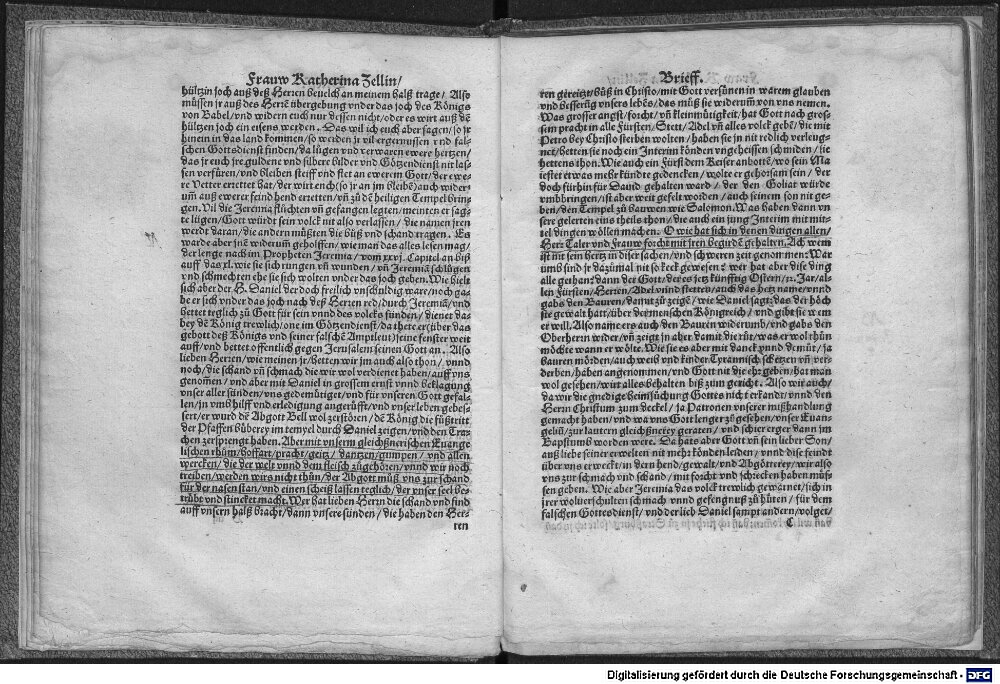 Frauw Katherina Zellin/
hültzin joch auß deß Herren bevelch an meinem halß trage/ Also
müssen jr auß des Herrē übergebung vnder das joch des Königs
von Babel/ vnd widern euch nur dessen nicht/ oder es wirt auß dē
hültzen joch ein eisens werden. Das wil ich euch aber sagen/ so jr
hinein in das land kommen/ so werden jr vil ergernussen vnd fal-
schen Gottsdienst finden/ da lügen vnd verwaren ewere hertzen/
das jr euch jre guldene vnd silbere bilder vnd Götzendienst nit las-
sen verfüren/ vnd bleiben steiff vnd stet an ewerem Gott/ der ewe-
re Vetter errettet hat/ der wirt euch (so jr an jm bleibē) auch wider-
um̄ auß ewerer feind hend erretten/ vn̄ zu dē heiligen Tempel brin-
gen. Vil die Jeremia flüchten vn̄ gefangen legten/ meinten er sag-
te lügen/ Gott würdt sein volck nit also verlassen/ die namen jren
werdt daran/ die andern müßten die büß vnd schand tragen. Es
warde aber jnē widerum̄ geholffen/ wie man das alles lesen mag/
der lenge nach im Propheten Jeremia/ vom xxvj. Capitel an biß
auff das xl. wie sie sich rungen vn̄ wunden/ vn̄ Jeremiā schlügen
vnd schmechten ehe sie sich wolten vnder das joch geben. Wie hielt
sich aber der H. Daniel der doch freilich vnschuldig ware/ noch ga-
be er sich vnder das joch nach deß Herren red/ durch Jeremiā/ vnd
bettet teglich zu Gott für sein vnnd des volcks sünden/ dienet da-
bey dē König trewlich/ one im Götzendienst/ da thete er (über das
gebott deß Königs vnd seiner falschē Amptleut) seine fenster weit
auff/ vnd bettet offentlich gegen Jerusalem seinen Gott an. Also
lieben Herren/ wie meinen jr/ hetten wir jm auch also thon/ vnnd
noch/ die schand vn̄ schmach die wir wol verdienet haben/ auff vns
genom̄en/ vnd aber mit Daniel in grossem ernst vnnd beklagung
vnser aller sünden/ vns gedemütiget/ vnd für vnseren Gott gefal-
len/ jn vmb hilff vnd erledigung angerüfft/ vnd vnser leben gebes-
sert/ er wurd dē Abgott Bell wol zerstören/ dē König die füßtritt
der Pfaffen büberey im tempel durch Daniel zeigen/ vnd den Tra-
chen zersprengt haben. Aber mit vnserm gleichßnerischen Euange-
lischen rhüm/ hoffart/ pracht/ geitz/ dantzen/ gumpen/ vnd allen
wercken/ die der welt vnnd dem fleisch zügehören/ vnnd wir noch
treiben/ werden wirs nicht thün/ der Abgott müß vns zur schand
für der nasen stan/ vnd einen scheiß lassen teglich/ der vnser seel be-
trübt vnd stincket macht. Wer hat lieben Herrn die schand vnd sünd
auff vnsern halß bracht/ dann vnsere sünden/ die haben den Her-
ren
Brieff.
ren gereitzt/ büß in Christo/ mit Gott versünen in warem glauben
vnd besserüg vnsers lebēs/ das müß sie widerum̄ von vns nemen.
Was grosser angst/ forcht/ vn̄ kleinmütigkeit/ hat Gott nach gros-
sem pracht in alle Fürsten/ Stett/ Adel vn̄ alles volck gebē/ die mit
Petro bey Christo sterben wolten/ haben sie jn nit redlich verleug-
net/ betten sie noch ein Interim könden vngeheissen schmiden/ sie
hettens thon. Wie auch ein Fürst dem Keiser anbotte/ wo sein Ma-
iestet etwas mehr kündte gedencken/ wolte er gehorsam sein/ der
doch fürhin für Dauid gehalten ward/ der den Goliat würde
vmbbringen/ ist aber weit gefelt worden/ auch seinem son nit ge-
ben/ den Tempel zu bauwen wie Salomon. Was haben dann vn
sere gelerten eins theils thon/ die auch ein jung Interim mit mit-
tel dingen wöllen machen. O wie hat sich in denen dingen allen/
Herr Taler vnd Frauw forcht mit jren beginden gehalten. Ach wem
ist nit sein hertz in diser sachen/ vnd schweren zeit genommen: War
umb sind jr dazumal nit so keck gewesen? wir hat aber dise ding
alle gethan: dann der Gott/ der es jetz künfftig Ostern/ 32. Jar/ al-
len Fürsten/ Herren/ Adel vnnd stetten/ auch das hertz name/ vnnd
gabs den Bauren/ damit zu zeigē/ wie Daniel sagt: das der höch
ste gewalt hatt/ über der menschen Königreich/ vnd gibt sie wem
er will. Also name ers auch den Bauren widerumb/ vnd gabs den
Oberherrn wider/ vn̄ zeigt in aber damit die rüt/ was er wol thün
möchte wann er wölte. Wie sie es aber mit danck vnnd demüt/ ja
bauren mörden/ auch weib vnd kinder Tyrannisch schetzen vn̄ ver-
derben/ haben angenommen/ vnd Gott nit die ehr geben/ hat man
wol gesehen/ wirt alles behalten biß zum gericht. Also wir auch/
da wir die gnedige heimsüchung Gottes nicht erkandt/ vnnd den
Herrn Christum zum deckel/ ja Patronen vnserer mißhandlung
gemacht haben/ vnd wa vns Gott lenger zů gesehen/ vnser Euan-
gelist/ zur lautern gleichßnerey geraten/ vnd schier erger dann im
Bapstumb worden were. Da hats aber Gott vn̄ sein lieber Son/
auß liebe seiner erwelten nit mehr könden leiden/ vnnd dise feindt
über vns erweckt/ in dern hend/ gewalt/ vnd Abgötterey/ wir also
vns zur schmach vnd schand/ mit forcht vnd schrecken haben müs-
sen geben. Wie aber Jeremia das volck trewlich gewarnet/ sich in
jrer wolverschulten schmach vnnd gefengnuß zu hüten/ für dem
falschen Gottesdienst/ vnd der lieb Daniel sampt andern/ volget/
C
Digitalisierung gefördert durch die Deutsche Forschungsgemeinschaft - DFG